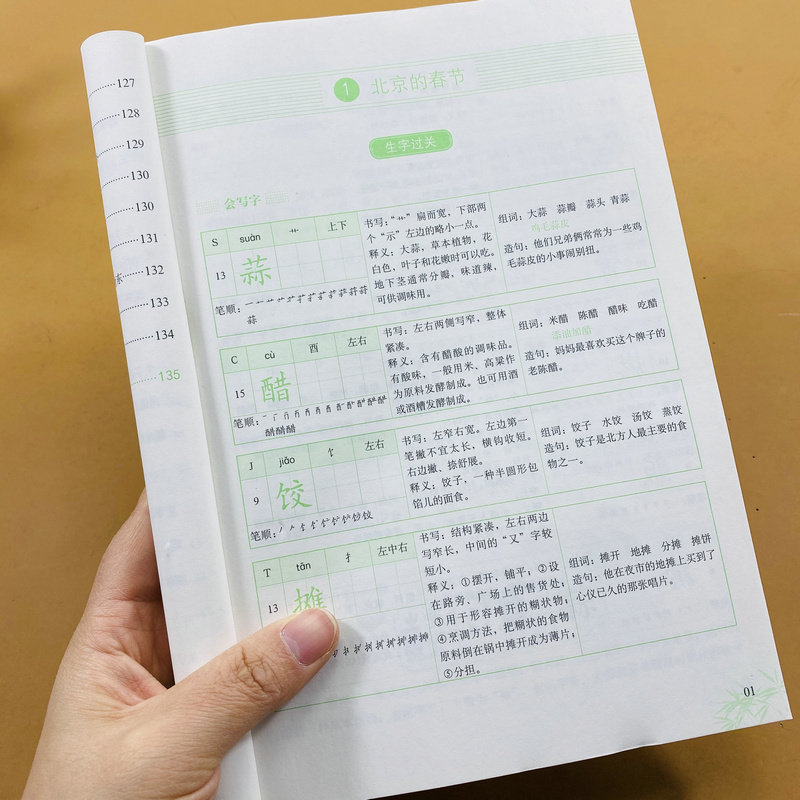 127
128
129
130
130
131
132
133
134
135
1 北京的春节
生字过关
会写字
S suàn 艹 上下
13 蒜
笔顺：
蒜
书写：“艹”扁而宽，下部两
个“示”左边的略小一点。
释义：大蒜，草本植物，花
白色，叶子和花嫩时可以吃。
地下茎通常分瓣，味道辣，
可供调味用。
组词：大蒜 蒜瓣 蒜头 青蒜
鸡毛蒜皮
造句：他们兄弟俩常常为一些鸡
毛蒜皮的小事闹别扭。
C cù 酉 左右
15 醋
笔顺：
书写：左右两侧写窄，整体
紧凑。
释义：含有醋酸的调味品。
有酸味，一般用米、高粱作
为原料发酵制成。也可用酒
或酒糟发酵制成。
组词：米醋 陈醋 醋味 吃醋
添油加醋
造句：妈妈最喜欢买这个牌子的
老陈醋。
J jiǎo 饣 左右
9 饺
笔顺：
书写：左窄右宽。左边第一
笔撇不宜太长，横钩收短。
右边撇、捺舒展。
释义：饺子，一种半圆形包
馅儿的面食。
组词：饺子 水饺 汤饺 蒸饺
造句：饺子是北方人最主要的食
物之一。
T tān 扌 左中右
13 摊
书写：结构紧凑，左右两边
写窄长，中间的“又”字较
短小。
释义：①摆开，铺平；②设
在路旁、广场上的售货处；
③用于形容摊开的糊状物；
④烹调方法，把糊状的食物
原料倒在锅中摊开成为薄片；
⑤分担。
组词：摊开 地摊 分摊 摊饼
造句：他在夜市的地摊上买到了
心仪已久的那张唱片。
01